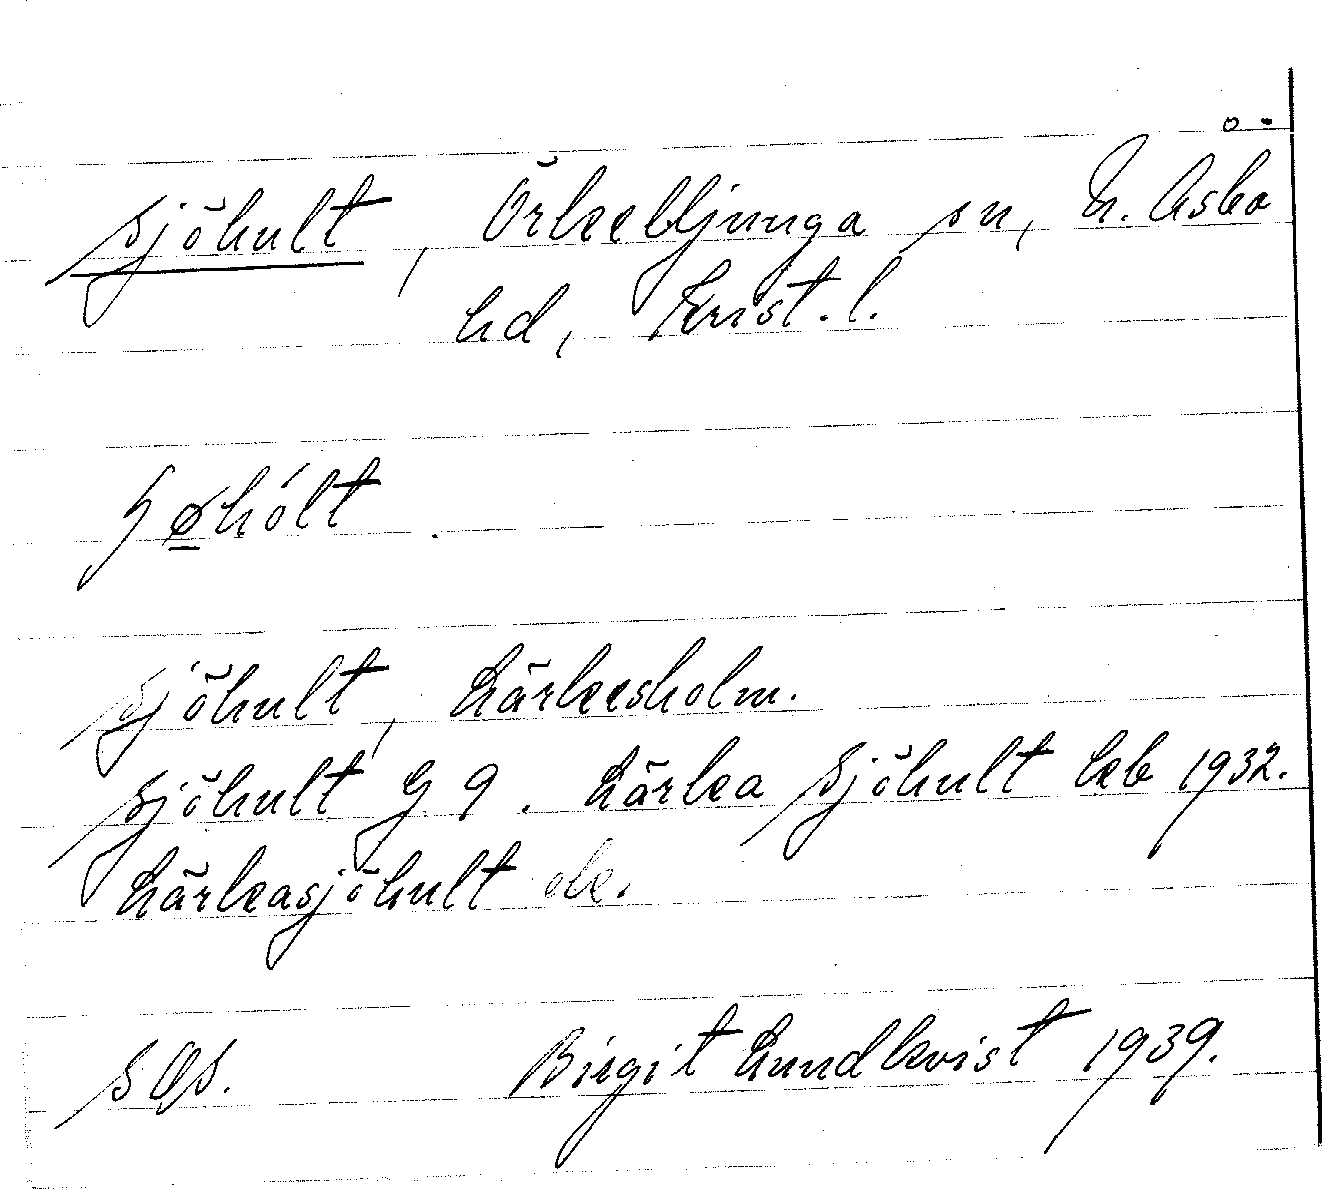 Sjöhult, Örkelljunga sn, N. Åsbo
hd, Krist. l.
ʃø̱hólt.
Sjöhult, Lärkesholm.
Sjöhult G 9. Lärka Sjöhult kb 1932.
Lärkasjöhult ek.
SOS. Birgit Lundkvist 1939.